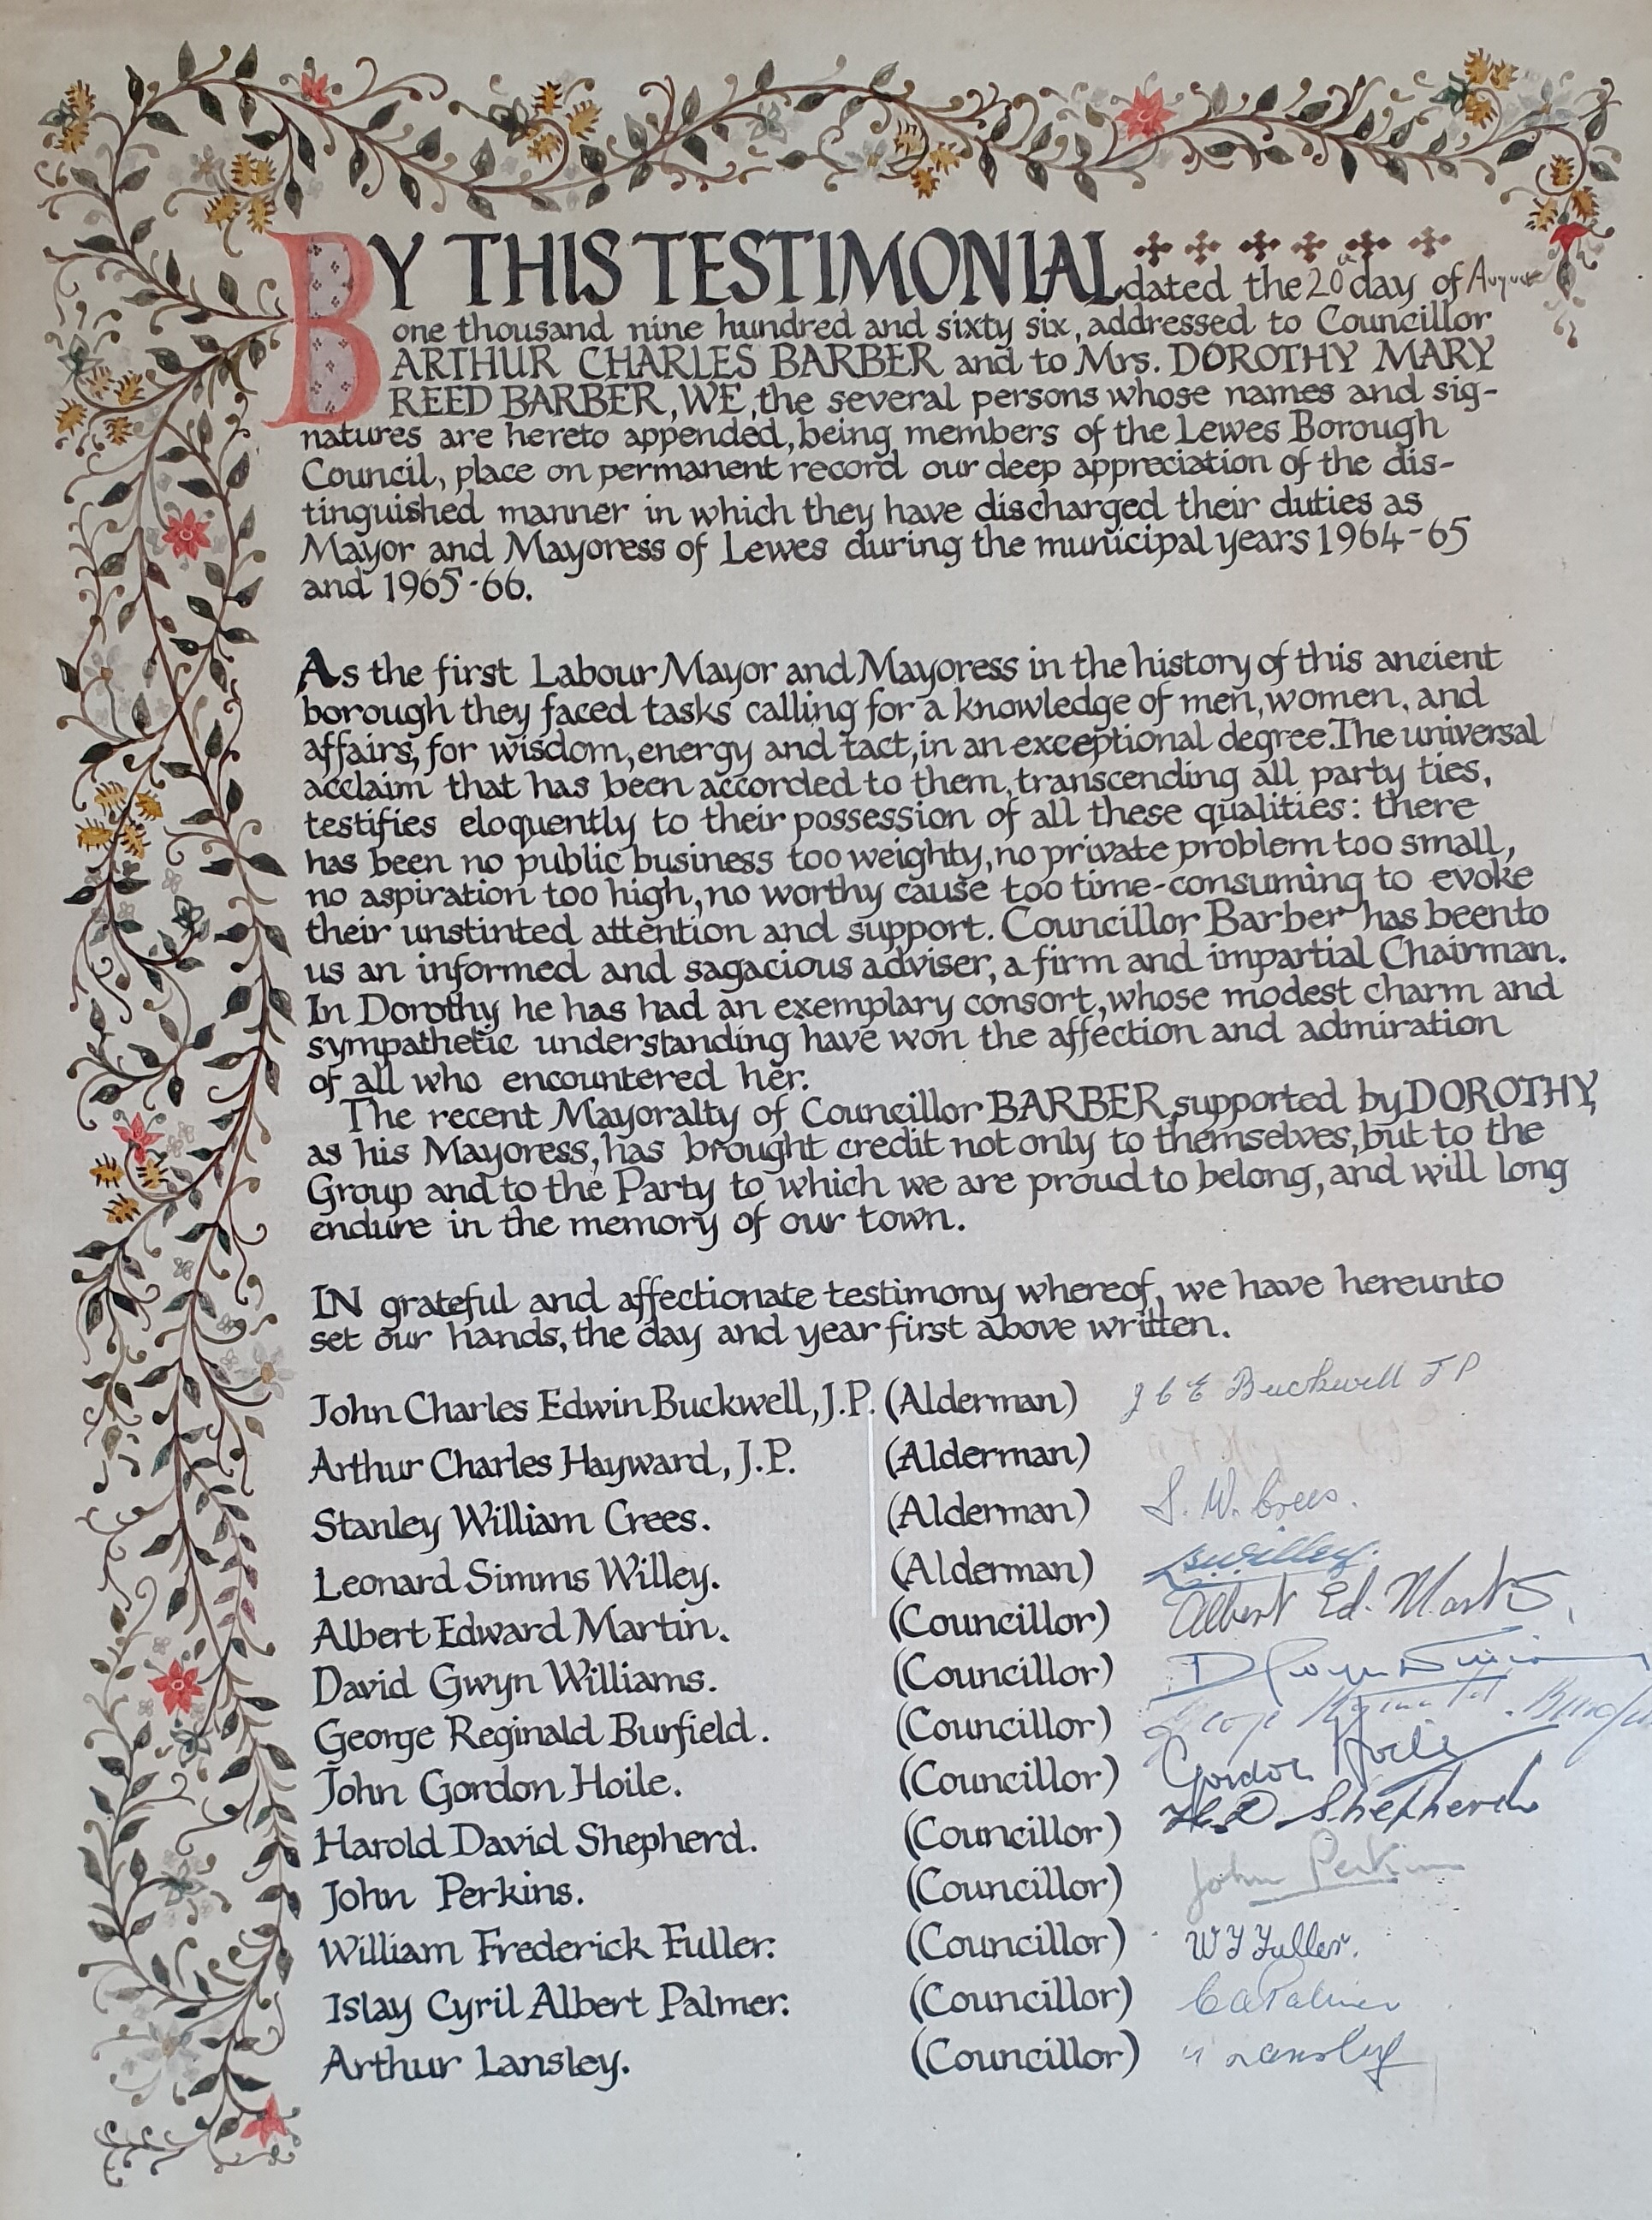 BY THIS TESTIMONIAL dated the 20th day of August
one thousand nine hundred and sixty six, addressed to Councillor
ARTHUR CHARLES BARBER and to Mrs. DOROTHY MARY
REED BARBER, WE, the several persons whose names and sig-
natures are hereto appended, being members of the Lewes Borough
Council, place on permanent record our deep appreciation of the dis-
tinguished manner in which they have discharged their duties as
Mayor and Mayoress of Lewes during the municipal years 1964-65
and 1965-66.
As the first Labour Mayor and Mayoress in the history of this ancient
borough they faced tasks calling for a knowledge of men, women, and
affairs, for wisdom, energy and tact, in an exceptional degree. The universal
acclaim that has been accorded to them, transcending all party ties,
testifies eloquently to their possession of all these qualities: there
has been no public business too weighty, no private problem too small,
no aspiration too high, no worthy cause too time-consuming to evoke
their unstinted attention and support. Councillor Barber has been to
us an informed and sagacious adviser, a firm and impartial Chairman.
In Dorothy he has had an exemplary consort, whose modest charm and
sympathetic understanding have won the affection and admiration
of all who encountered her.
The recent Mayoralty of Councillor BARBER, supported by DOROTHY,
as his Mayoress, has brought credit not only to themselves, but to the
Group and to the Party to which we are proud to belong, and will long
endure in the memory of our town.
IN grateful and affectionate testimony whereof, we have hereunto
set our hands, the day and year first above written.
John Charles Edwin Buckwell, J.P. (Alderman) J C E Buckwell J P
Arthur Charles Hayward, J.P. (Alderman)
Stanley William Crees. (Alderman) S. W. Crees.
Leonard Simms Willey. (Alderman) Willey.
Albert Edward Martin. (Councillor) Albert Ed. Martin
David Gwyn Williams. (Councillor) D Gwyn
George Reginald Burfield. (Councillor) George Reginald
John Gordon Hoile. (Councillor) Gordon Hoile
Harold David Shepherd. (Councillor) H. D. Shepherd
John Perkins. (Councillor) John Perkins
William Frederick Fuller. (Councillor) W F Fuller.
Islay Cyril Albert Palmer. (Councillor) C A Palmer
Arthur Lansley. (Councillor) Lansley